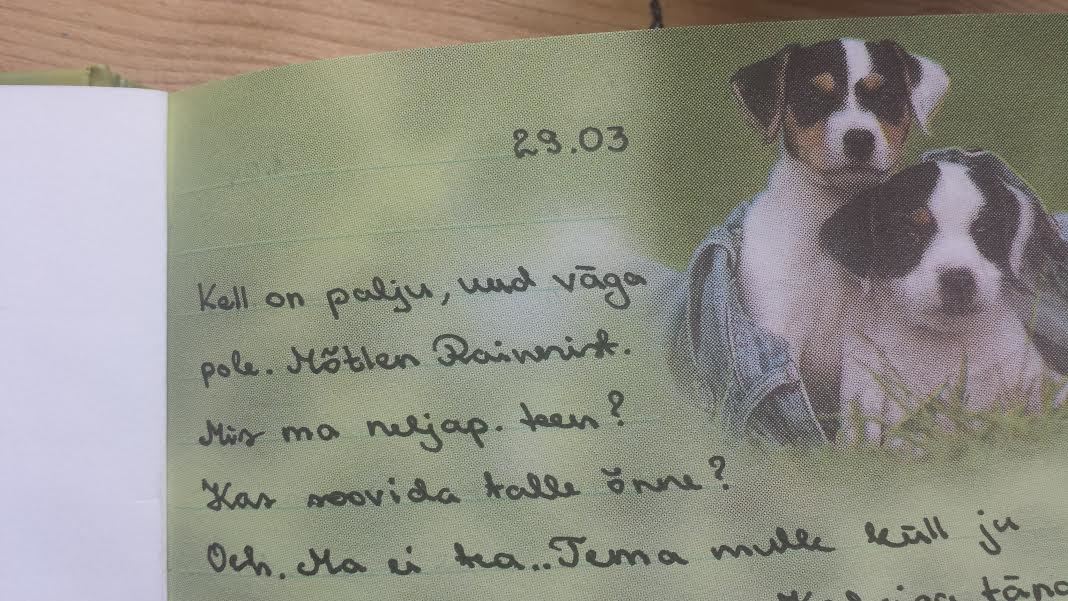 29.03
Kell on palju, und väga
pole. Mõtlen Rainerist.
Mis ma neljap. teen?
Kas soovida talle õnne?
Och. Ma ei tea.. Tema mulle küll ju